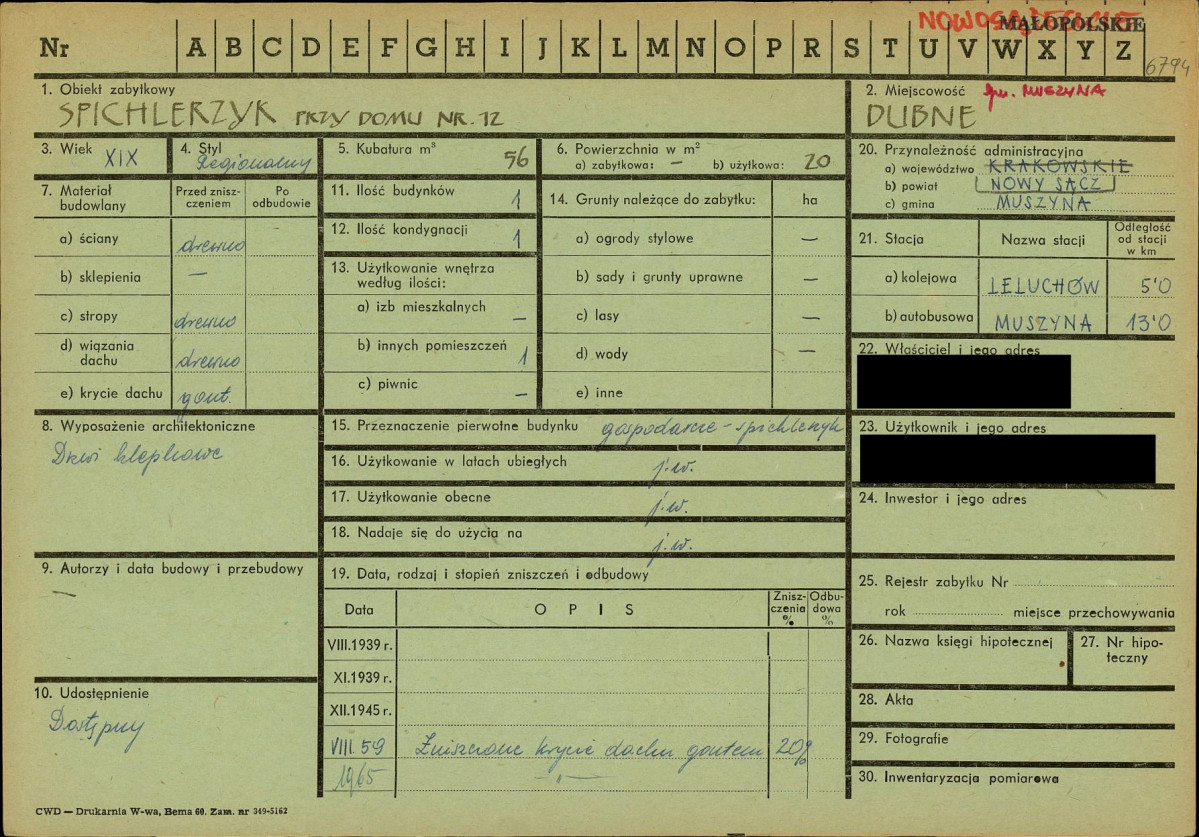 NOWOSĄDECKIE
MAŁOPOLSKIE
Nr A B C D E F G H I J K L M N O P R S T U V W X Y Z
6794
1. Obiekt zabytkowy
SPICHLERZYK PRZY DOMU NR. 12
2. Miejscowość gm. MUSZYNA
DUBNE
3. Wiek XIX
4. Styl
Regionalny
5. Kubatura m³
56
6. Powierzchnia w m²
a) zabytkowa: — b) użytkowa: 20
20. Przynależność administracyjna
a) województwo KRAKOWSKIE
b) powiat NOWY SĄCZ
c) gmina MUSZYNA
7. Materiał budowlany
Przed znisz-
czeniem
Po
odbudowie
a) ściany drewno
b) sklepienia —
c) stropy drewno
d) wiązania
dachu drewno
e) krycie dachu gont.
11. Ilość budynków 1
12. Ilość kondygnacji 1
13. Użytkowanie wnętrza
według ilości:
a) izb mieszkalnych —
b) innych pomieszczeń 1
c) piwnic —
14. Grunty należące do zabytku: ha
a) ogrody stylowe —
b) sady i grunty uprawne —
c) lasy —
d) wody —
e) inne
21. Stacja Nazwa stacji
Odległość
od stacji
w km
a) kolejowa LELUCHÓW 5'0
b) autobusowa MUSZYNA 13'0
22. Właściciel i jego adres
23. Użytkownik i jego adres
24. Inwestor i jego adres
8. Wyposażenie architektoniczne
Drzwi klepkowe
15. Przeznaczenie pierwotne budynku gospodarcze - spichlerzyk
16. Użytkowanie w latach ubiegłych j.w.
17. Użytkowanie obecne j.w.
18. Nadaje się do użycia na j.w.
9. Autorzy i data budowy i przebudowy
—
10. Udostępnienie
Dostępny
19. Data, rodzaj i stopień zniszczeń i odbudowy
Data OPIS
Znisz-
czenia
%
Odbu-
dowa
%
VIII.1939 r.
XI.1939 r.
XII.1945 r.
VIII.59 Zniszczone krycie dachu gontem 20%
1965 —"—
25. Rejestr zabytku Nr
rok miejsce przechowywania
26. Nazwa księgi hipotecznej
27. Nr hipo-
teczny
28. Akta
29. Fotografie
30. Inwentaryzacja pomiarowa
CWD — Drukarnia W-wa, Bema 60. Zam. nr 349-5162